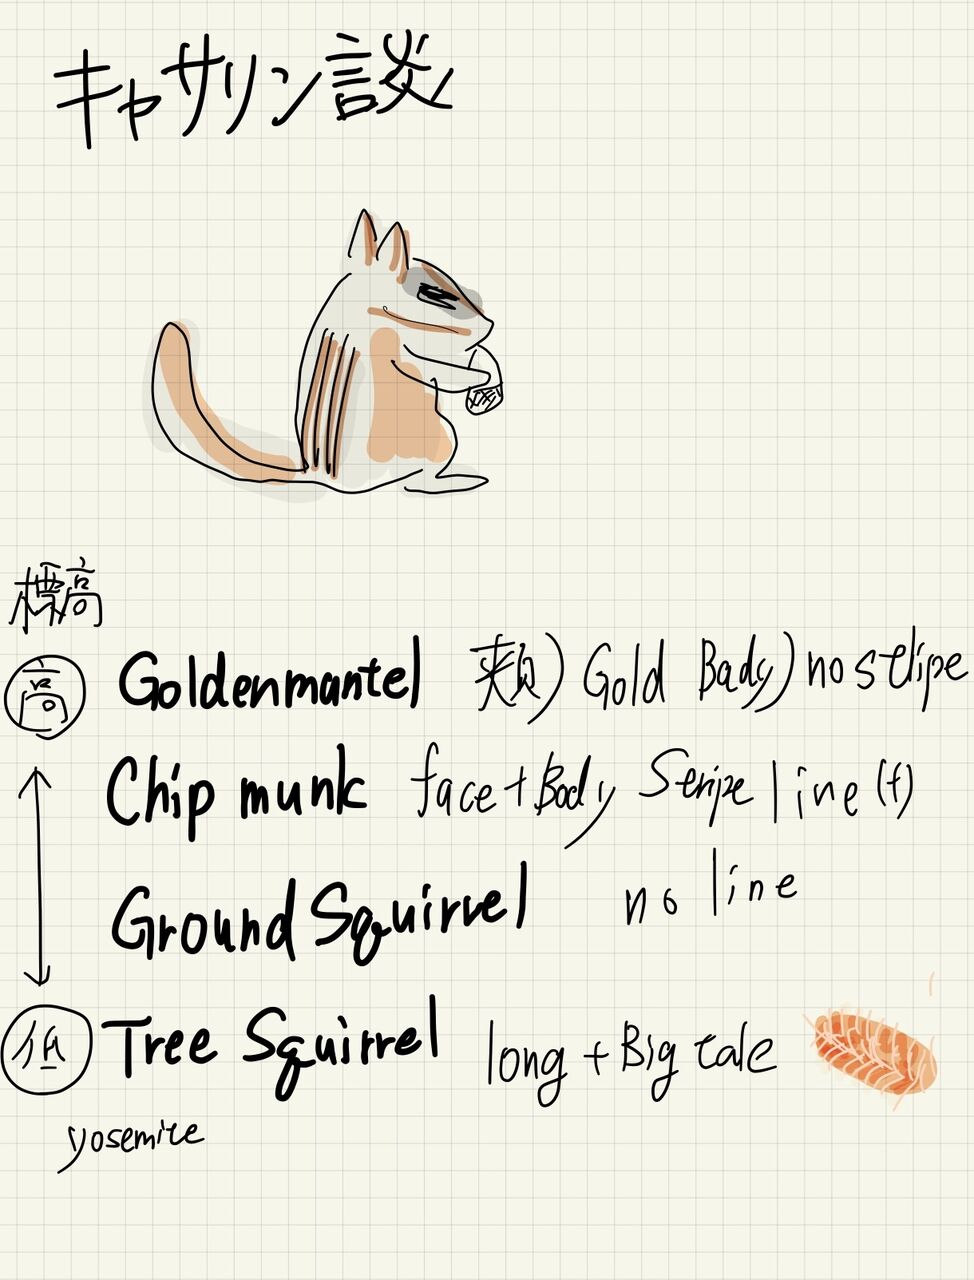 キャサリン談
標高
高 Goldenmantel 頬) Gold Bady) no stripe
Chip munk face + Body Stripe line (+)
Ground Squirrel no line
低 Tree Squirrel long + Big tale
yosemite